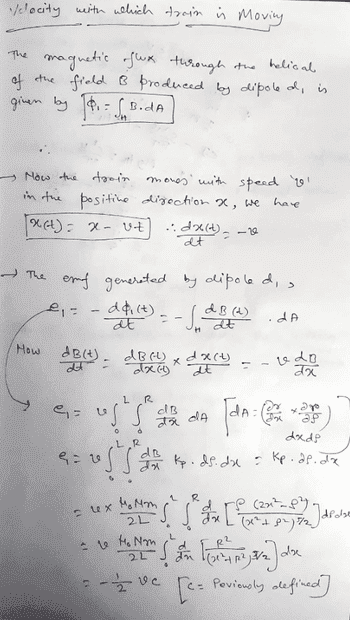 Velocity with which train is Moving
The magnetic flux through the helical
of the field B produced by dipole d, is
given by φ₁ = ∫_H B.dA
∴
→ Now the train moves with speed 'v'
in the positive direction x, we have
x(t) = x - vt ∴ dx(t)/dt = -v
→ The emf generated by dipole d₁,
e₁ = - dφ₁(t)/dt = - ∫_H dB(t)/dt . dA
Now dB(t)/dt = dB(t)/dx(t) × dx(t)/dt = - v dB/dx
e₁ = v ∫₀^L ∫₀^R dB/dx dA [dA = (∂r/∂x × ∂r/∂ρ) dxdρ
e₁ = v ∫₀^L ∫₀^R dB/dx Kρ . dρ. dx = Kρ . dρ. dx
= v × μ₀Nm/2L ∫₀^L ∫₀^R d/dx [ρ (2x²-ρ²)/(x²+ρ²)^5/2] dρdx
= v μ₀Nm/2L ∫₀^L d/dx [R²/(x²+R²)^3/2] dx
= - 1/2 vc [c = Peviously defined]